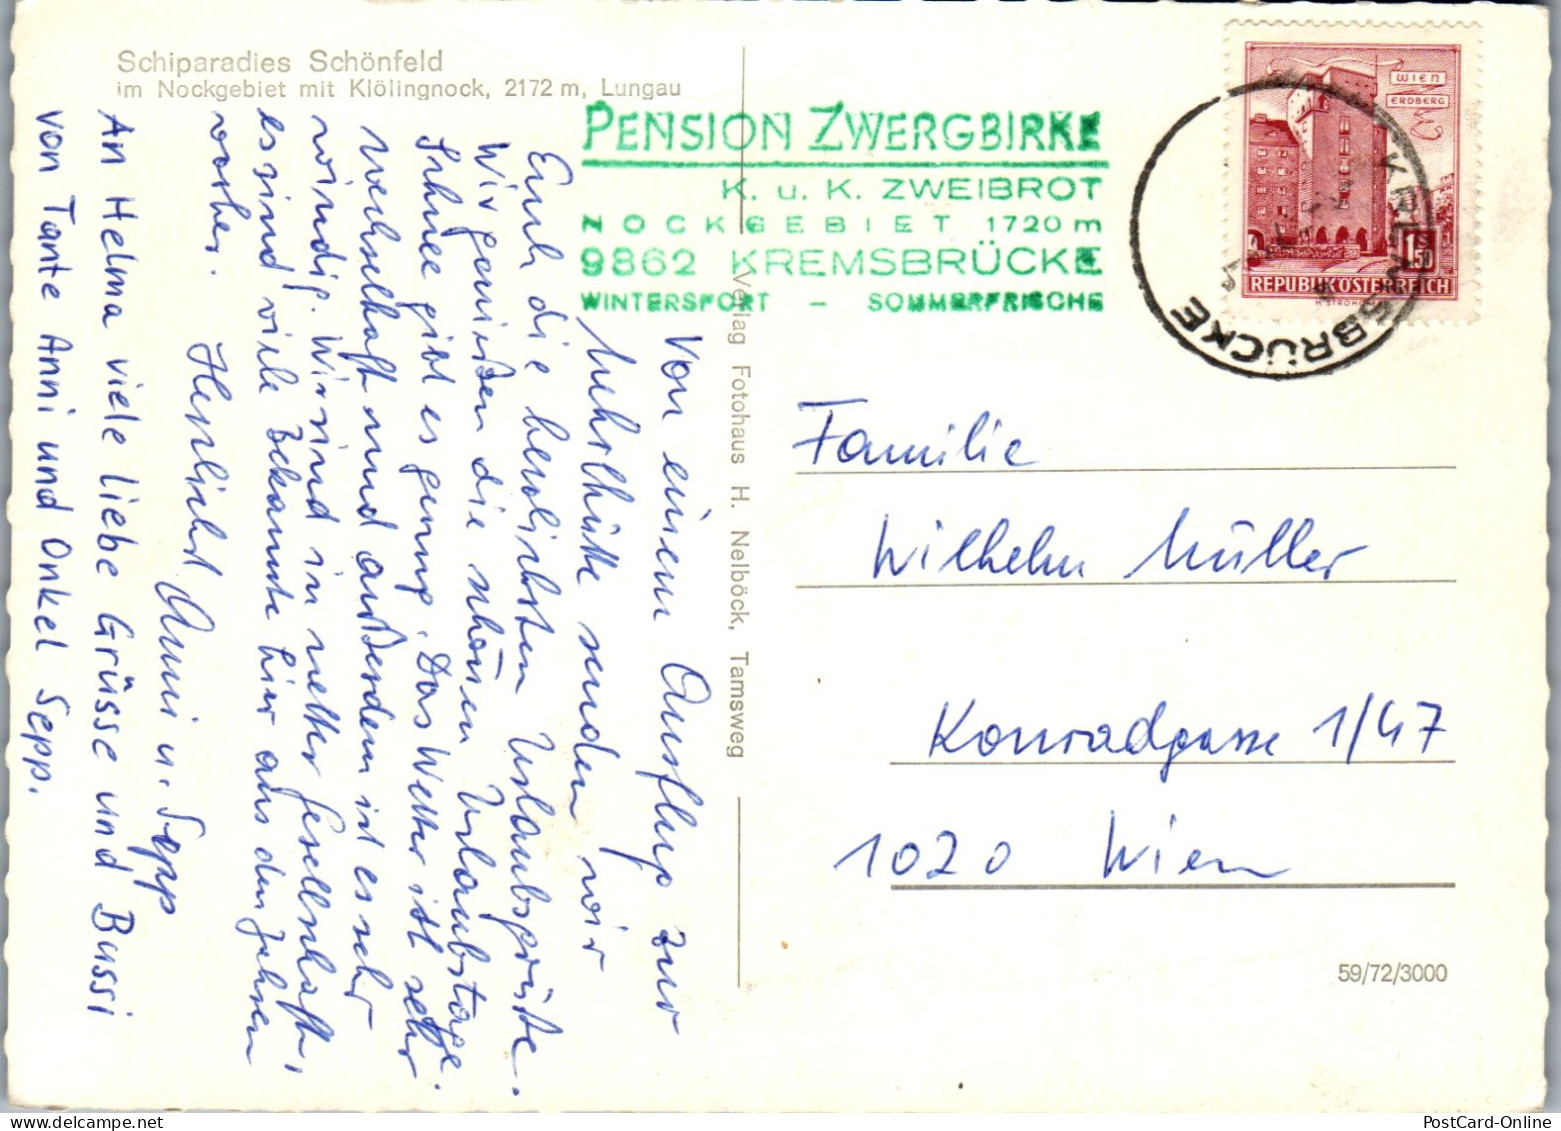 Schiparadies Schönfeld
im Nockgebiet mit Klölingnock, 2172 m, Lungau
PENSION ZWERGBIRKE
K. u. K. ZWEIBROT
NOCKGEBIET 1720 m
9862 KREMSBRÜCKE
WINTERSPORT – SOMMERFRISCHE
WIEN
ERDBERG
S
1.50
REPUBLIK ÖSTERREICH
KREMSBRÜCKE
Von einem Ausflug zur
Mehrlhütte senden wir
Euch die herzlichsten Urlaubsgrüße.
Wir genießen die schönen Urlaubstage.
Schnee gibt es genug. Das Wetter ist sehr
wechselhaft und außerdem ist es sehr
windig. Wir sind in netter Gesellschaft,
es sind viele Bekannte hier aus den Jahren
vorher.
Herzlichst Anni u. Sepp
An Helma viele liebe Grüsse und Bussi
von Tante Anni und Onkel Sepp.
Verlag Fotohaus H. Nelböck, Tamsweg
Familie
Wilhelm Müller
Konradgasse 1/47
1020 Wien
59/72/3000
PostCard-Online